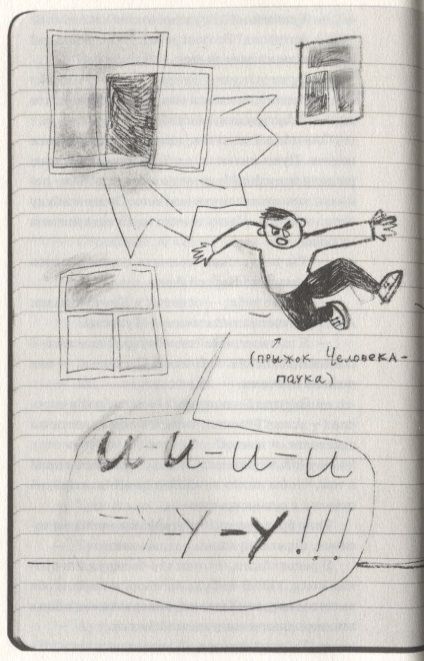 (прыжок Человека-
паука)
и-и-и-и
-у-у-у!!!